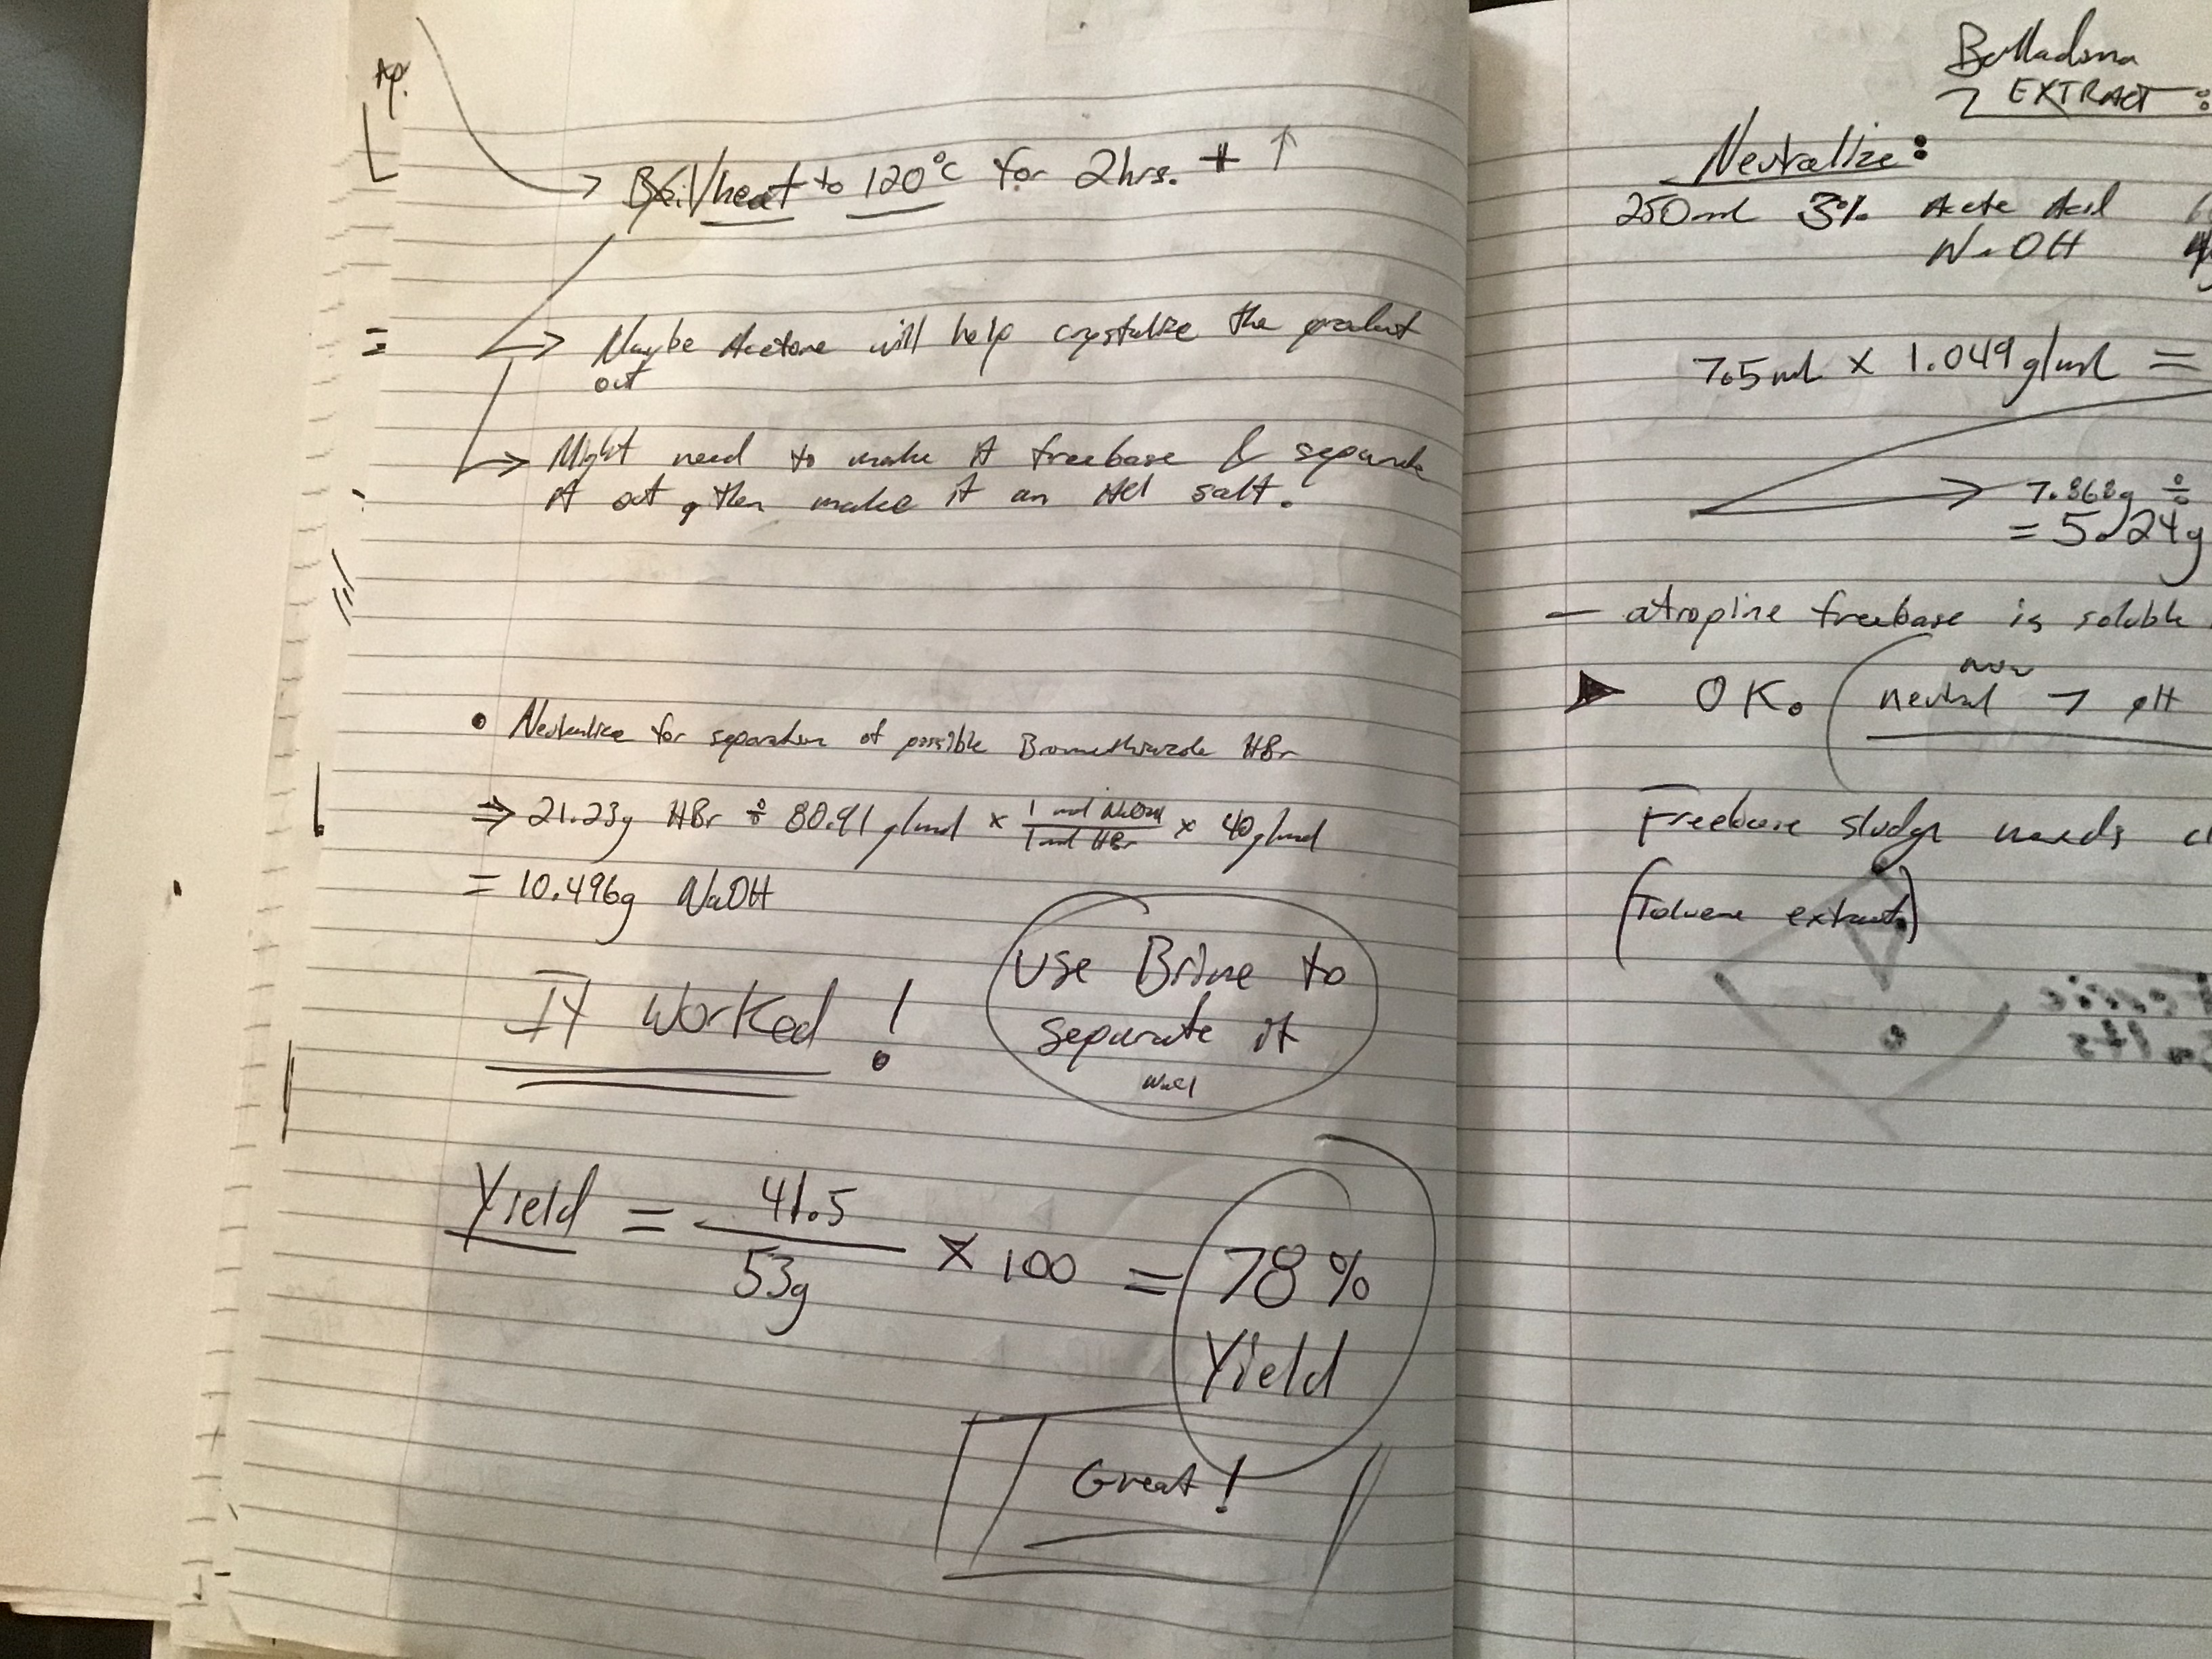 Boil/heat to 120°C for 2hrs. + ↑
Maybe Acetone will help crystalize the product
out
Might need to make it freebase & separate
it out, then make it an HCl salt.
• Neutralize for separation of possible HBr
⇒ 21.23g HBr ÷ 80.91 g/mol × 1 mol NaOH / 1 mol HBr × 40g/mol
= 10.496g NaOH
It Worked!
Use Brine to
separate it
NaCl
Yield = 41.5 / 53g × 100 = 78%
Yield
Great!
Belladonna
EXTRACT:
Neutralize:
250ml 3% Acetic Acid
NaOH
7.5ml × 1.049g/ml =
7.868g ÷
= 5.24g
— atropine freebase is soluble
now
OK. neutral → pH
Freebase sludge needs
(Toluene extract)